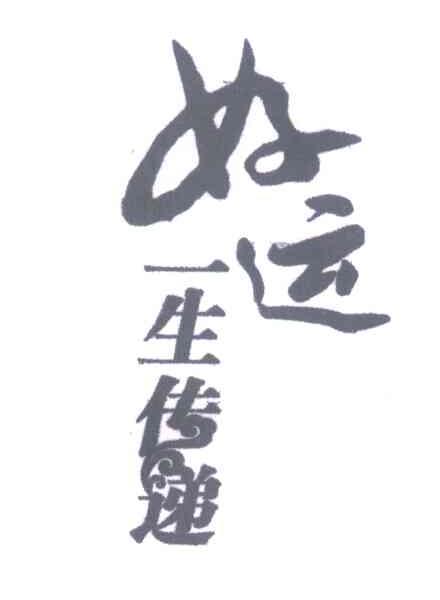 好运
一生传递